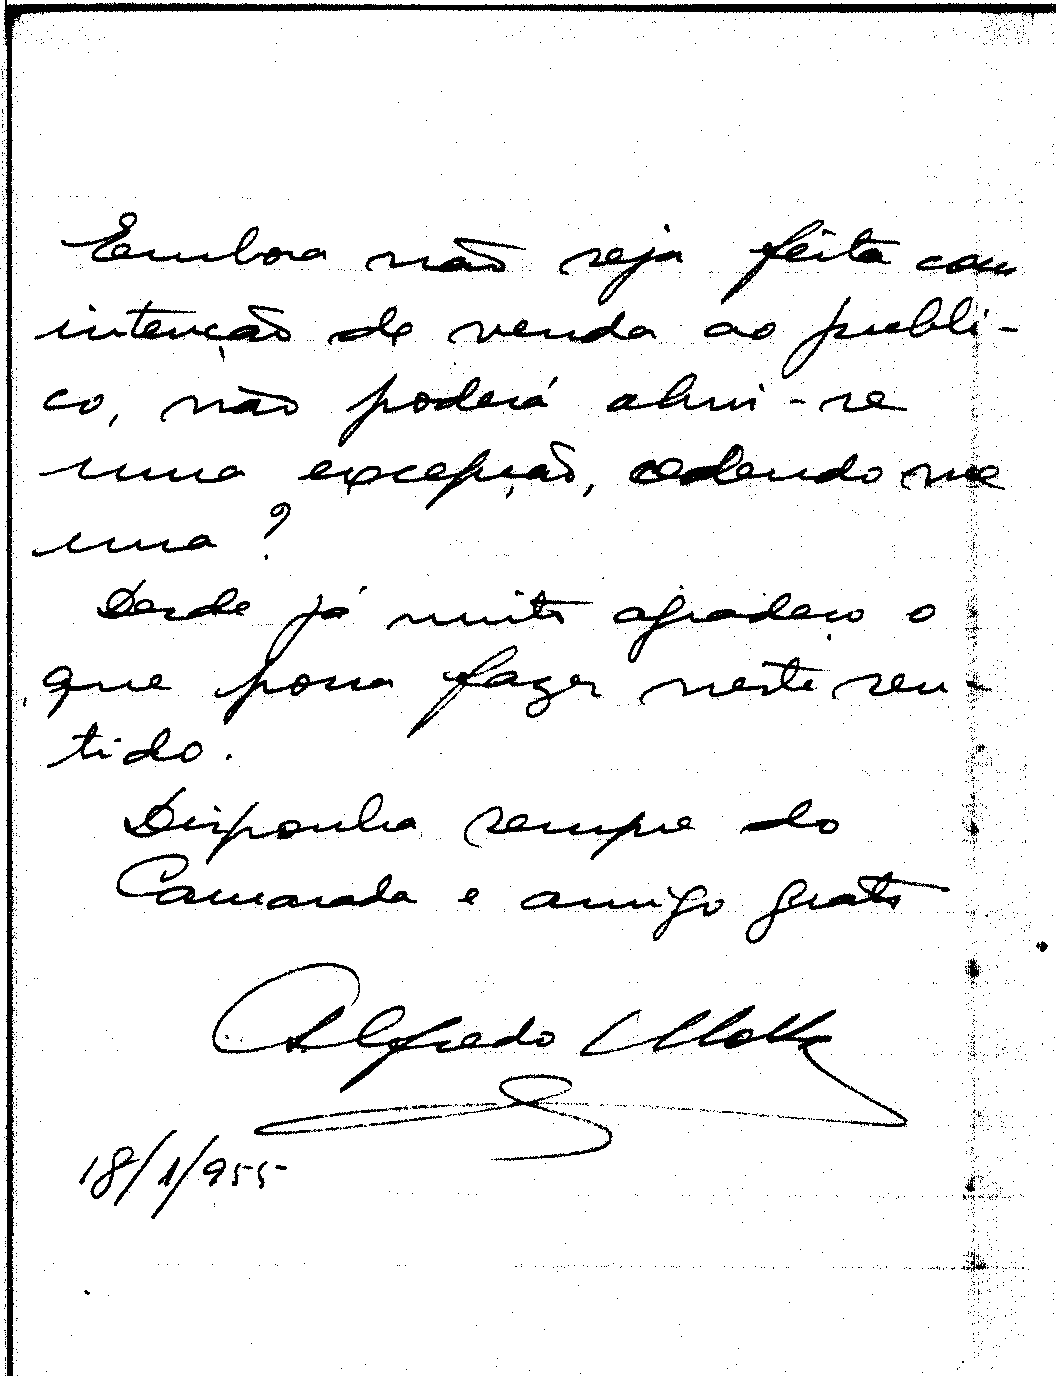 Embora não seja feita com
intenção de venda ao publi-
co, não poderá abrir-se
uma excepção, cedendo me
uma?
Desde já muito agradeço o
que possa fazer neste sen-
tido.
Disponha sempre do
Camarada e amigo grato
Alfredo Motta
18/1/955-